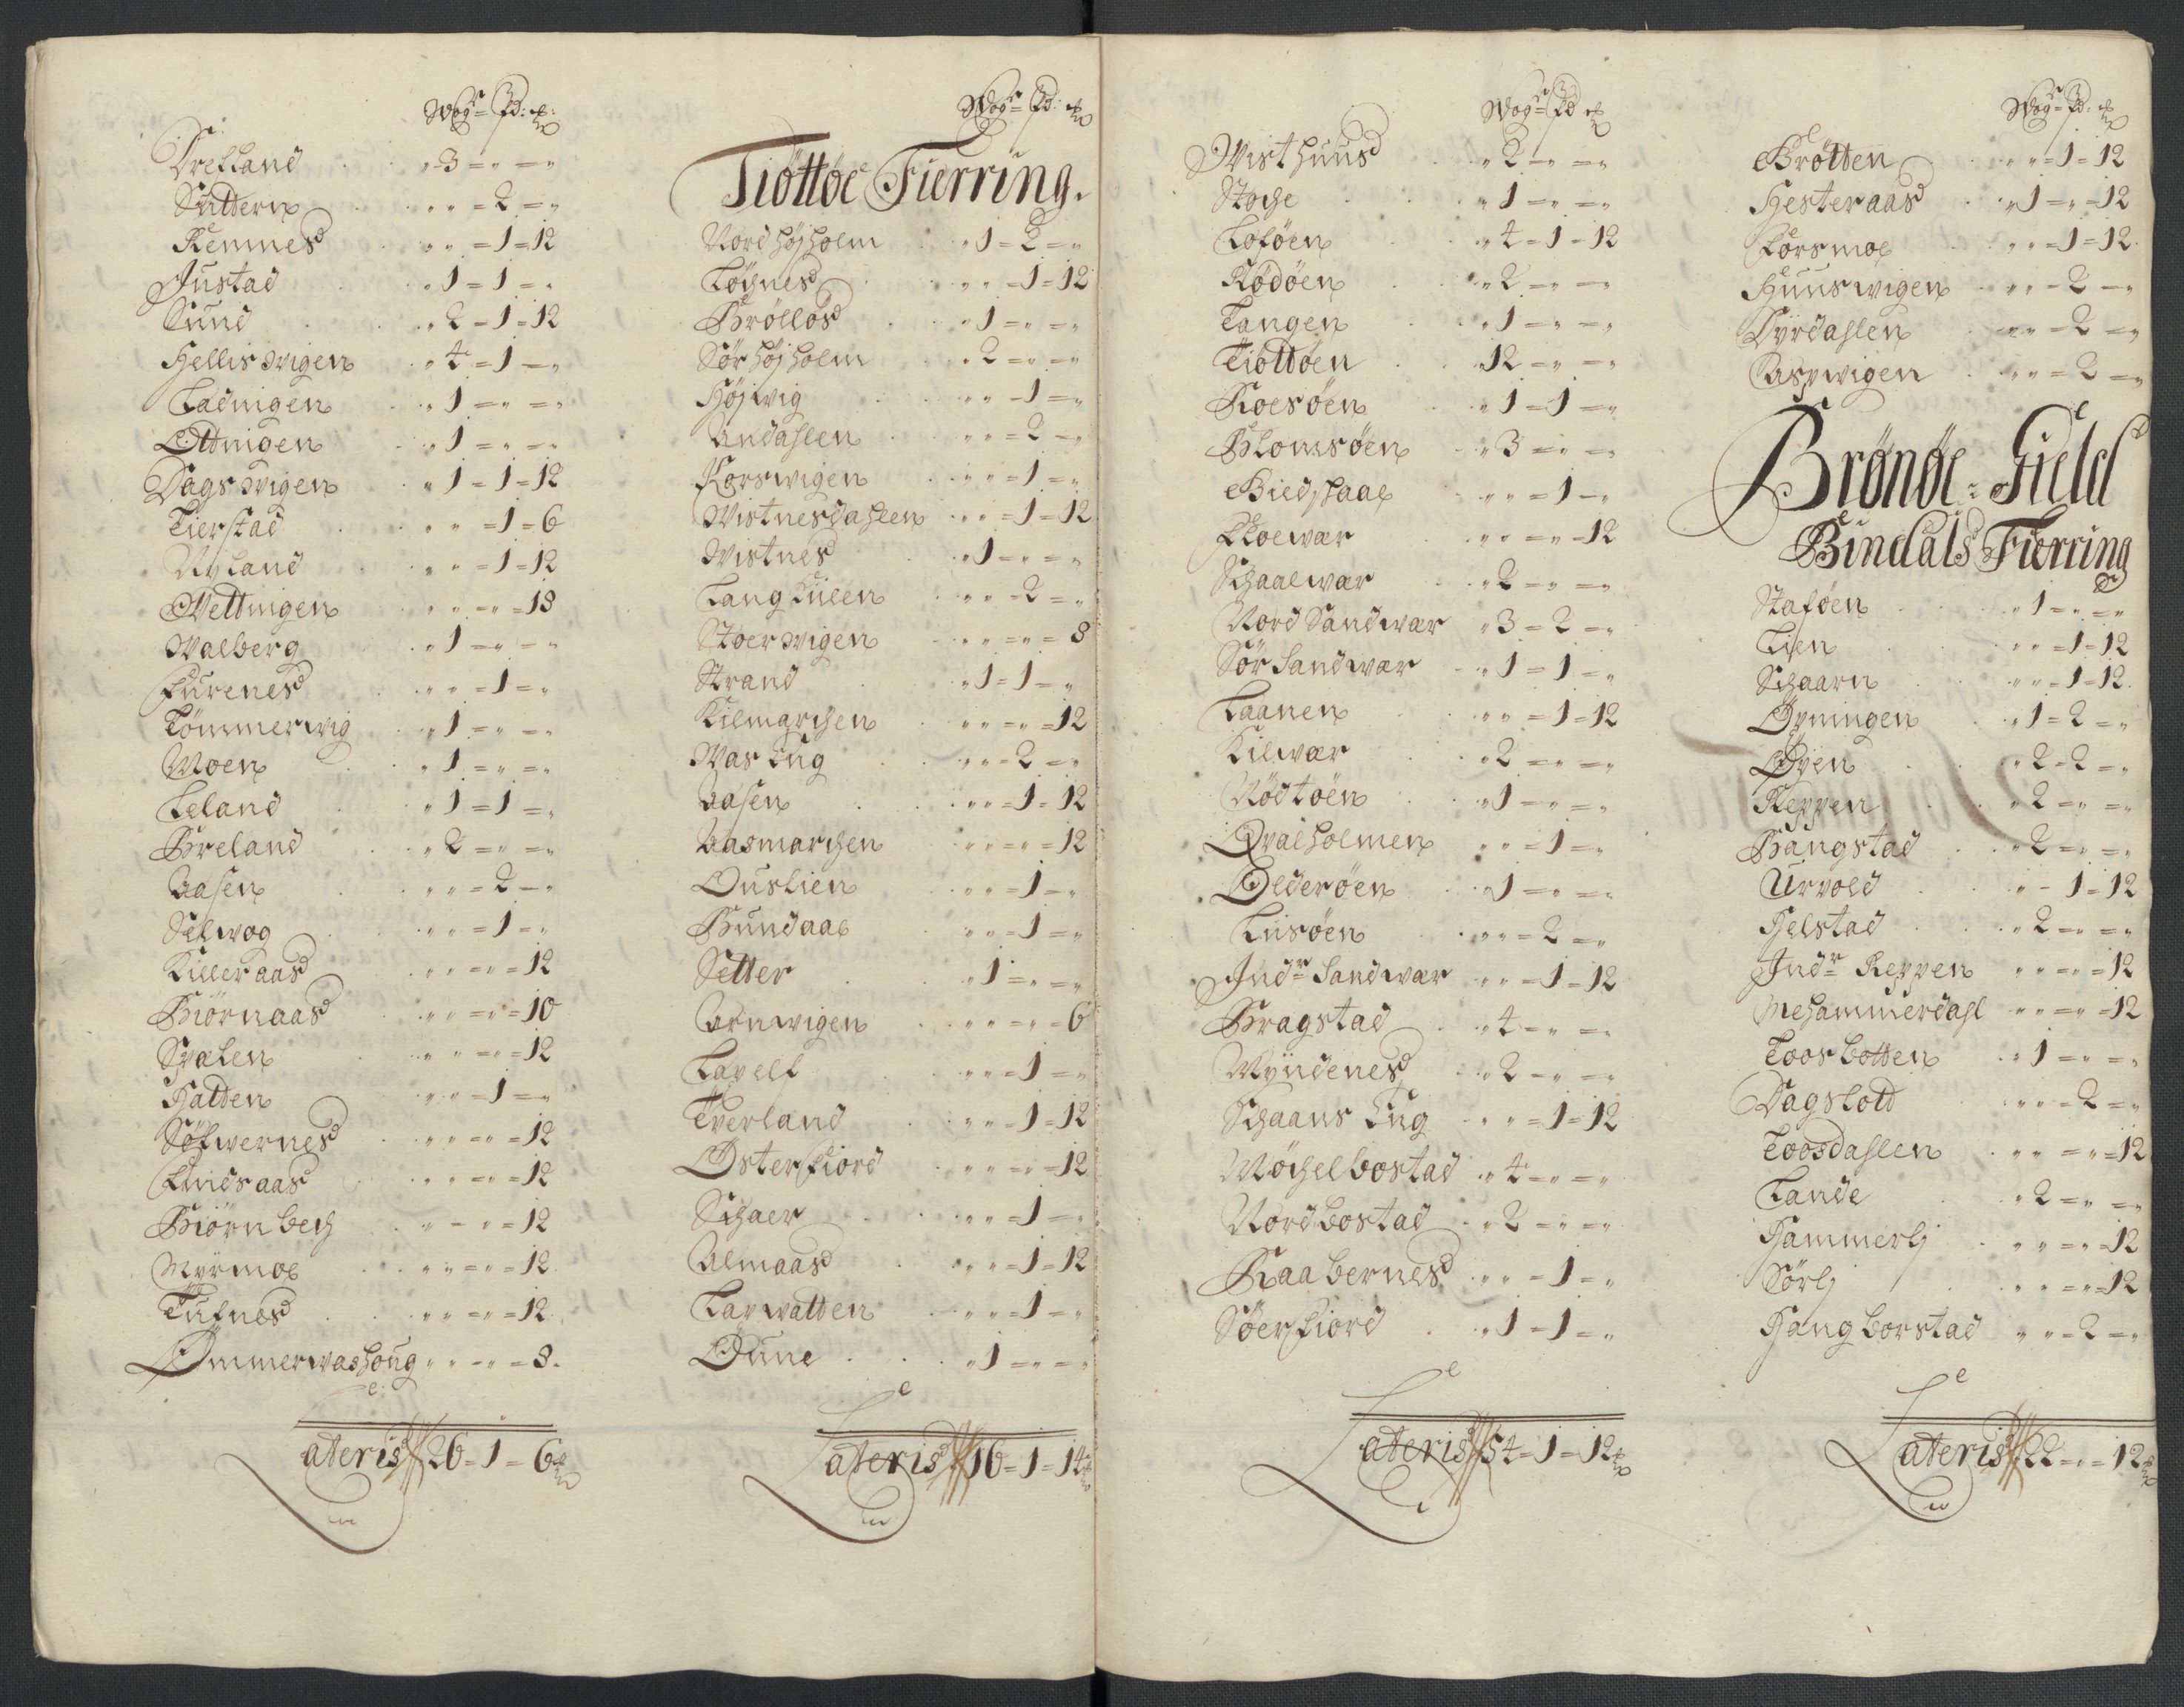 Wog:r Pd: lb:
Drefland „ 3 = „ = „
Suttern „ „ = 2 = „
Remnes „ „ = 1 = 12
Justad „ 1 = 1 = „
Sund „ 2 = 1 = 12
Hellisvigen „ 4 = 1 = „
Ladnigen „ 1 = „ = „
Ottnigen „ 1 = „ = „
Dagsvigen „ 1 = 1 = 12
Tierstad „ „ = 1 = 6
Nyland „ „ = 1 = 12
Wettnigen „ „ = „ = 18
Walberg „ 1 = „ = „
Furenes „ „ = 1 = „
Tømmervig „ 1 = „ = „
Moen „ 1 = „ = „
Leland „ 1 = 1 = „
Breland „ 2 = „ = „
Aasen „ „ = 2 = „
Selwog „ „ = 1 = „
Killeraas „ „ = „ = 12
Biørnaas „ „ = „ = 10
Svalen „ „ = „ = 12
Hatten „ „ = 1 = „
Søfwernes „ „ = „ = 12
Lindsaas „ „ = „ = 12
Biørnbech „ „ = „ = 12
Myrmoe „ „ = „ = 12
Tufnes „ „ = „ = 12
Ommerwashoug „ „ = „ = 8.
Lateris 26 = 1 = 6 lb
Wog:r Pd: lb
Tiøttøe Fierring.
Nord højholm „ 1 = 2 = „
Løchnes „ „ = 1 = 12
Brølløs „ 1 = „ = „
Sør højholm „ 2 = „ = „
Højvig „ „ = 1 = „
Andahlen „ „ = 2 = „
Korsvigen „ „ = 1 = „
Wistnesdahlen „ „ = 1 = 12
Wistnes „ 1 = „ = „
Langhulen „ „ = 2 = „
Stoervigen „ „ = „ = 8
Strand „ 1 = 1 = „
Kilmarchen „ „ = „ = 12
Waslug „ „ = 2 = „
Aasen „ „ = 1 = 12
Aasmarchen „ „ = „ = 12
Ouslien „ „ = 1 = „
Hundaal „ „ = 1 = „
Setter „ 1 = „ = „
Arnvigen „ „ = „ = 6
Lavelf „ „ = 1 = „
Tverland „ „ = 1 = 12
Østerfiord „ „ = „ = 12
Schaer „ „ = 1 = „
Almaas „ „ = 1 = 12
Lapwatten „ „ = 1 = „
Dune „ 1 = „ = „
Lateris 16 = 1 = 14 lb
Wog:r Pd lb
Wisthuus „ 2 = „ = „
Stoche „ 1 = „ = „
Loføen „ 4 = 1 = 12
Rødøen „ 2 = „ = „
Tangen „ 1 = „ = „
Tiøttøen 12 = „ = „
Roesøen „ 1 = 1 = „
Blomsøen „ 3 = „ = „
Giedschaal „ „ = 1 = „
Floevær „ „ = „ = 12
Schaalvær „ 2 = „ = „
Nord Sandvær „ 3 = 2 = „
Sør Sandvær „ 1 = 1 = „
Laanen „ „ = 1 = 12
Kilvær „ 2 = „ = „
Nødtøen „ 1 = „ = „
Qvalholmen „ „ = 1 = „
Olderøen „ 1 = „ = „
Lisøen „ „ = 2 = „
Indr Sandvær „ „ = 1 = 12
Bragstad „ 4 = „ = „
Myndenes „ 2 = „ = „
Schaanslug „ „ = 1 = 12
Møchelbostad „ 4 = „ = „
Nordbostad „ 2 = „ = „
Raabernes „ „ = 1 = „
Søerfiord „ 1 = 1 = „
Lateris 54 = 1 = 12 lb
Wog:r Pd: lb
Brøtten „ „ = 1 = 12
Hesteraas „ 1 = „ = 12
Forsmoe „ „ = 1 = 12.
Huusvigen „ „ = 2 = „
Dyrdahlen „ „ = 2 = „
Aspvigen „ „ = 2 = „
Brønøe Gield
Bindals Fierring
Staføen „ 1 = „ = „
Lien „ „ = 1 = 12
Schaarn „ „ = 1 = 12.
Øvningen „ 1 = 2 = „
Øyen „ 2 = 2 = „
Reppen „ 2 = „ = „
Bangstad „ 2 = „ = „
Urvold „ „ = 1 = 12
Helstad „ 2 = „ = „
Indr Reppen „ „ = „ = 12
Mehammerdahl „ „ = „ = 12
Toosbotten „ 1 = „ = „
Dagslott „ „ = 2 = „
Toosdahlen „ „ = „ = 12
Lande „ 2 = „ = „
Hammerlj „ „ = „ = 12
Sørlj „ „ = „ = 12
Hangborstad „ „ = 2 = „
Lateris 22 = „ = 12 lb